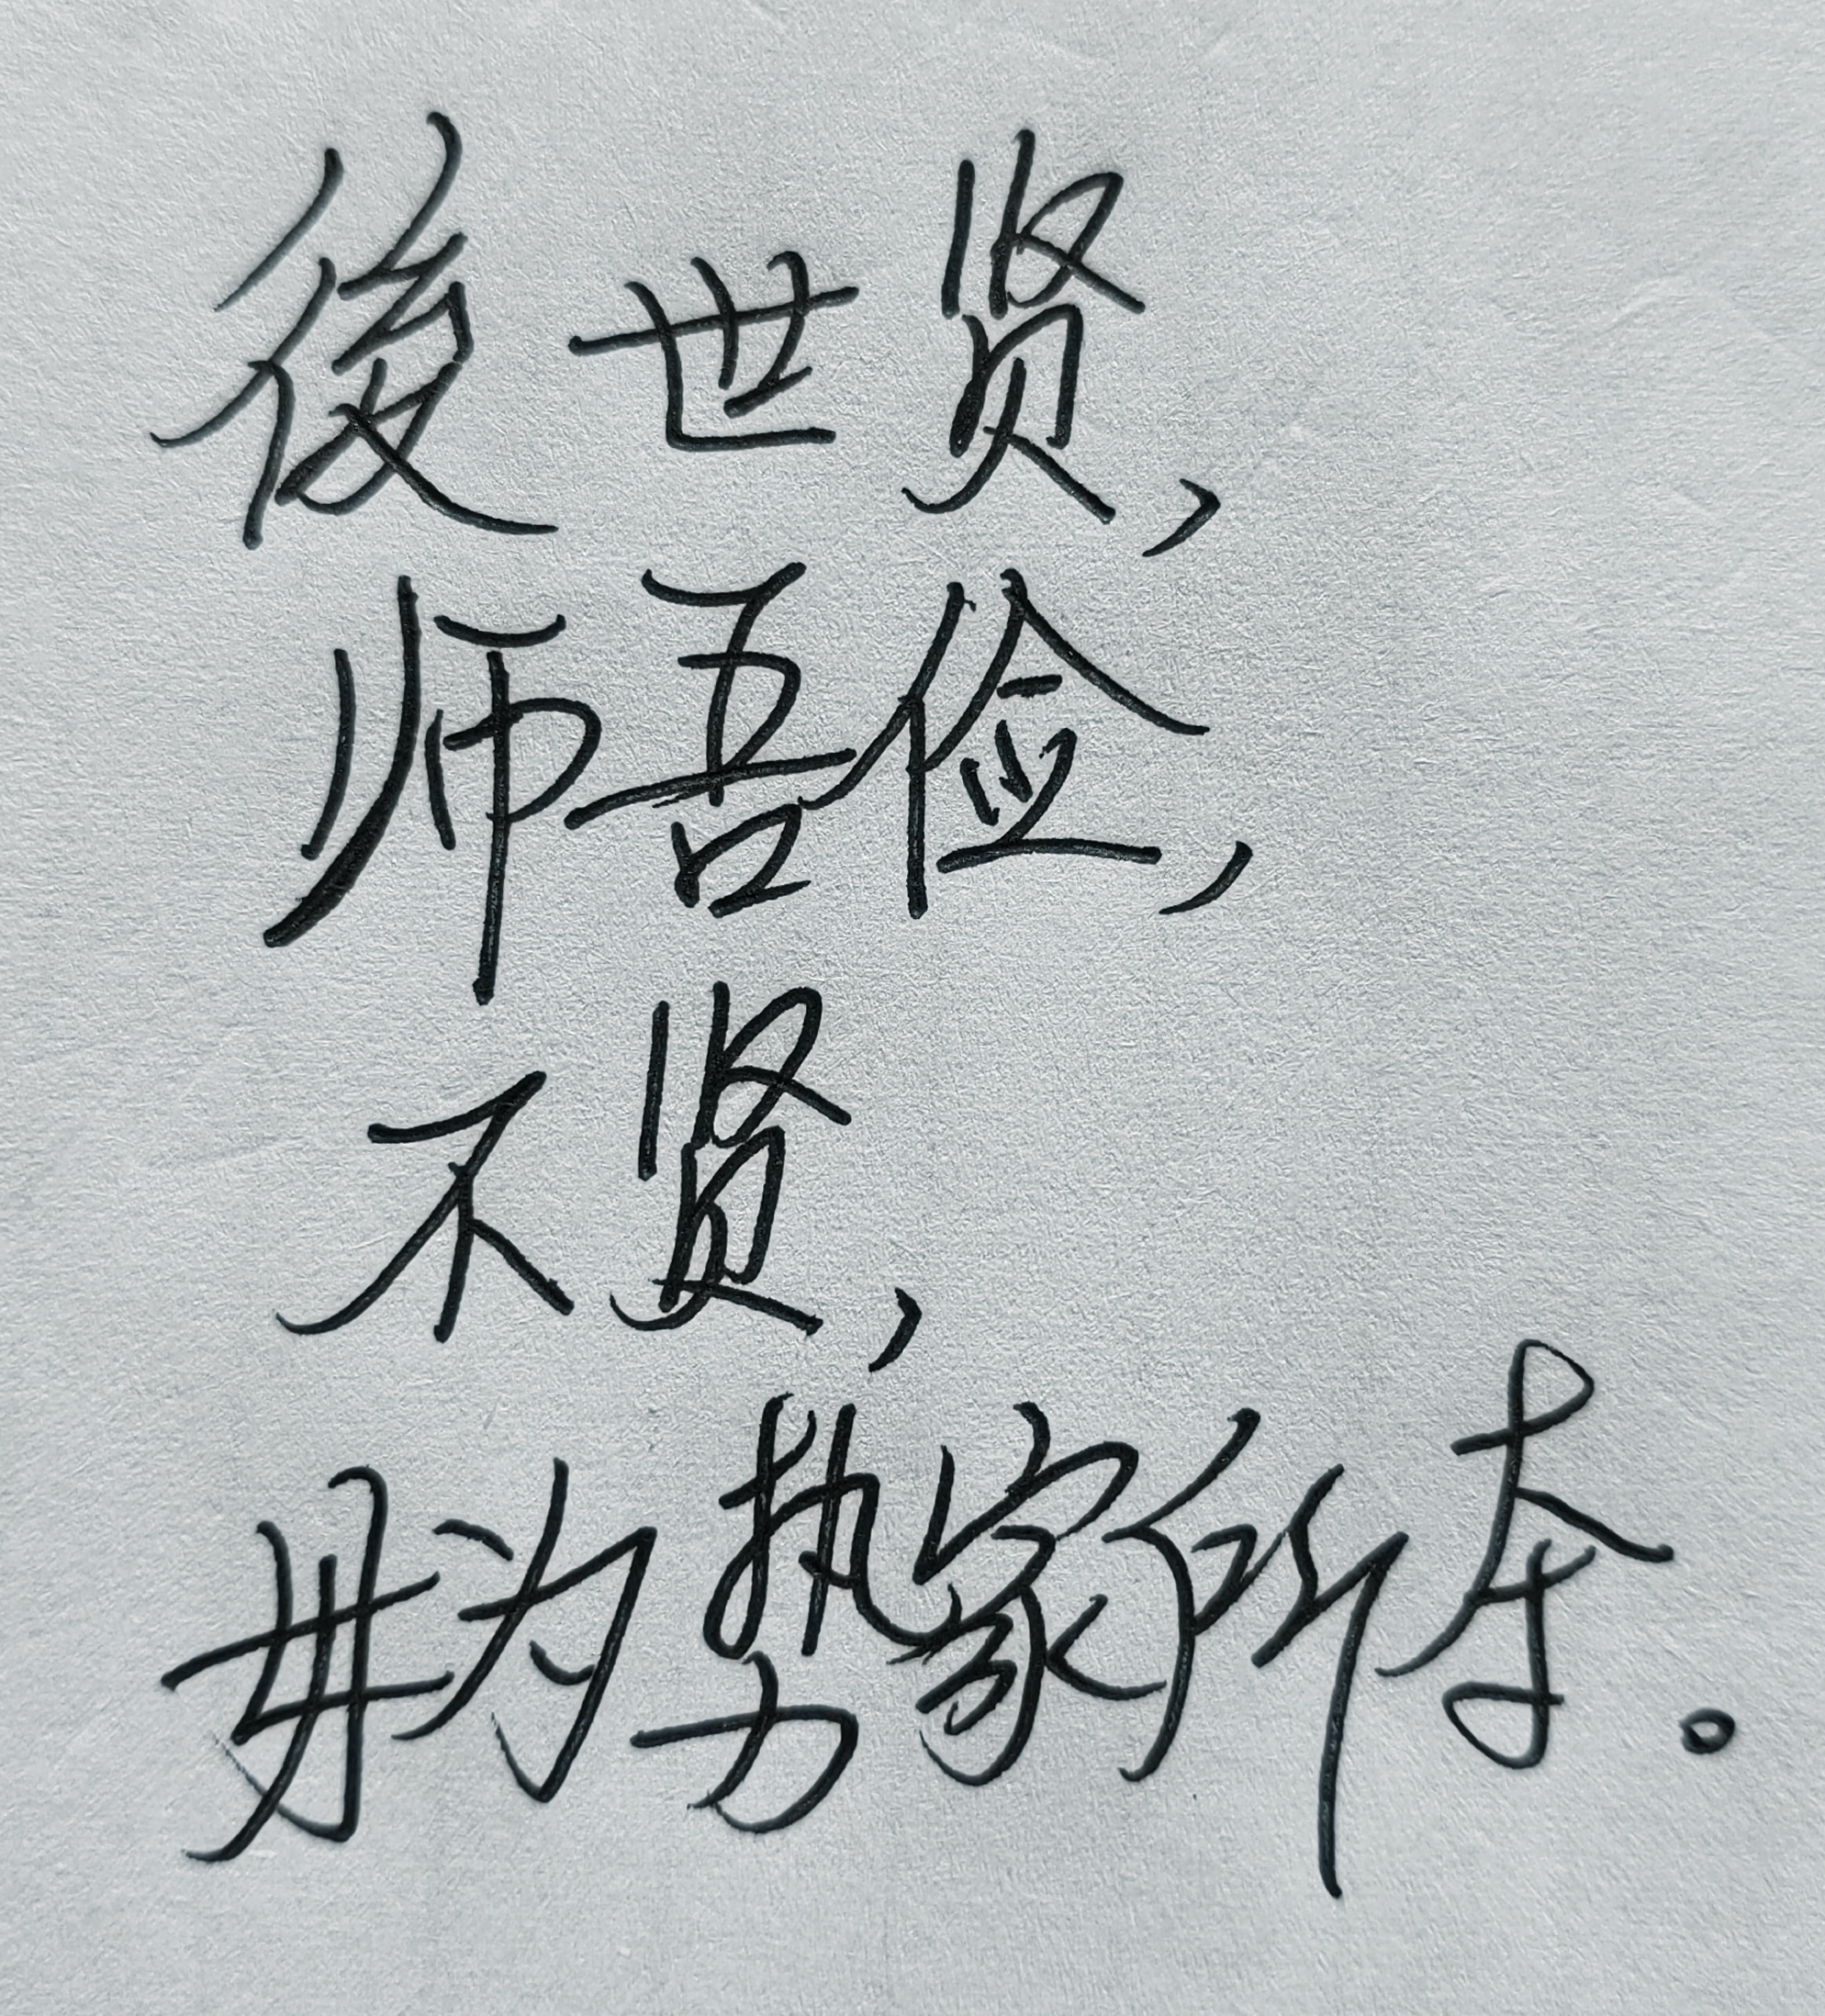 後世贤，
师吾俭，
不贤，
毋为势家所夺。